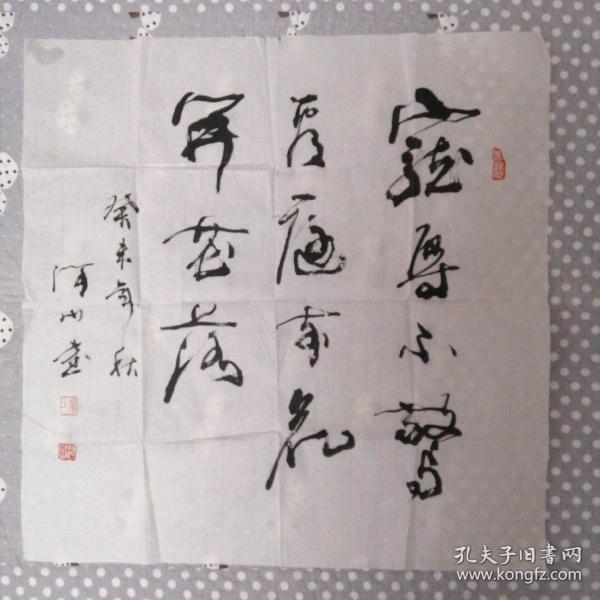 寵辱不驚
看庭前花
開花落
癸未年秋
孔夫子旧书网
www.kongfz.com